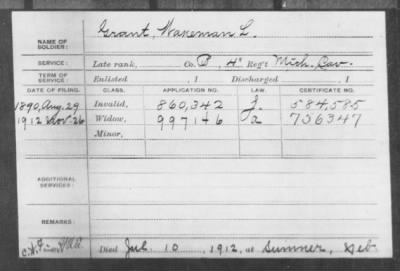 NAME OF SOLDIER: Grant, Wakeman L.
SERVICE: Late rank, Co. B, 4" Reg't Mich. Cav.
TERM OF SERVICE: Enlisted , 1 Discharged , 1
DATE OF FILING. CLASS. APPLICATION NO. LAW. CERTIFICATE NO.
1890, Aug. 29 Invalid, 860,342 J. 584,585
1912 Nov. 26 Widow, 997146 a 756347
Minor,
ADDITIONAL SERVICES:
REMARKS:
Died Jul. 10, 1912, at Sumner, Neb